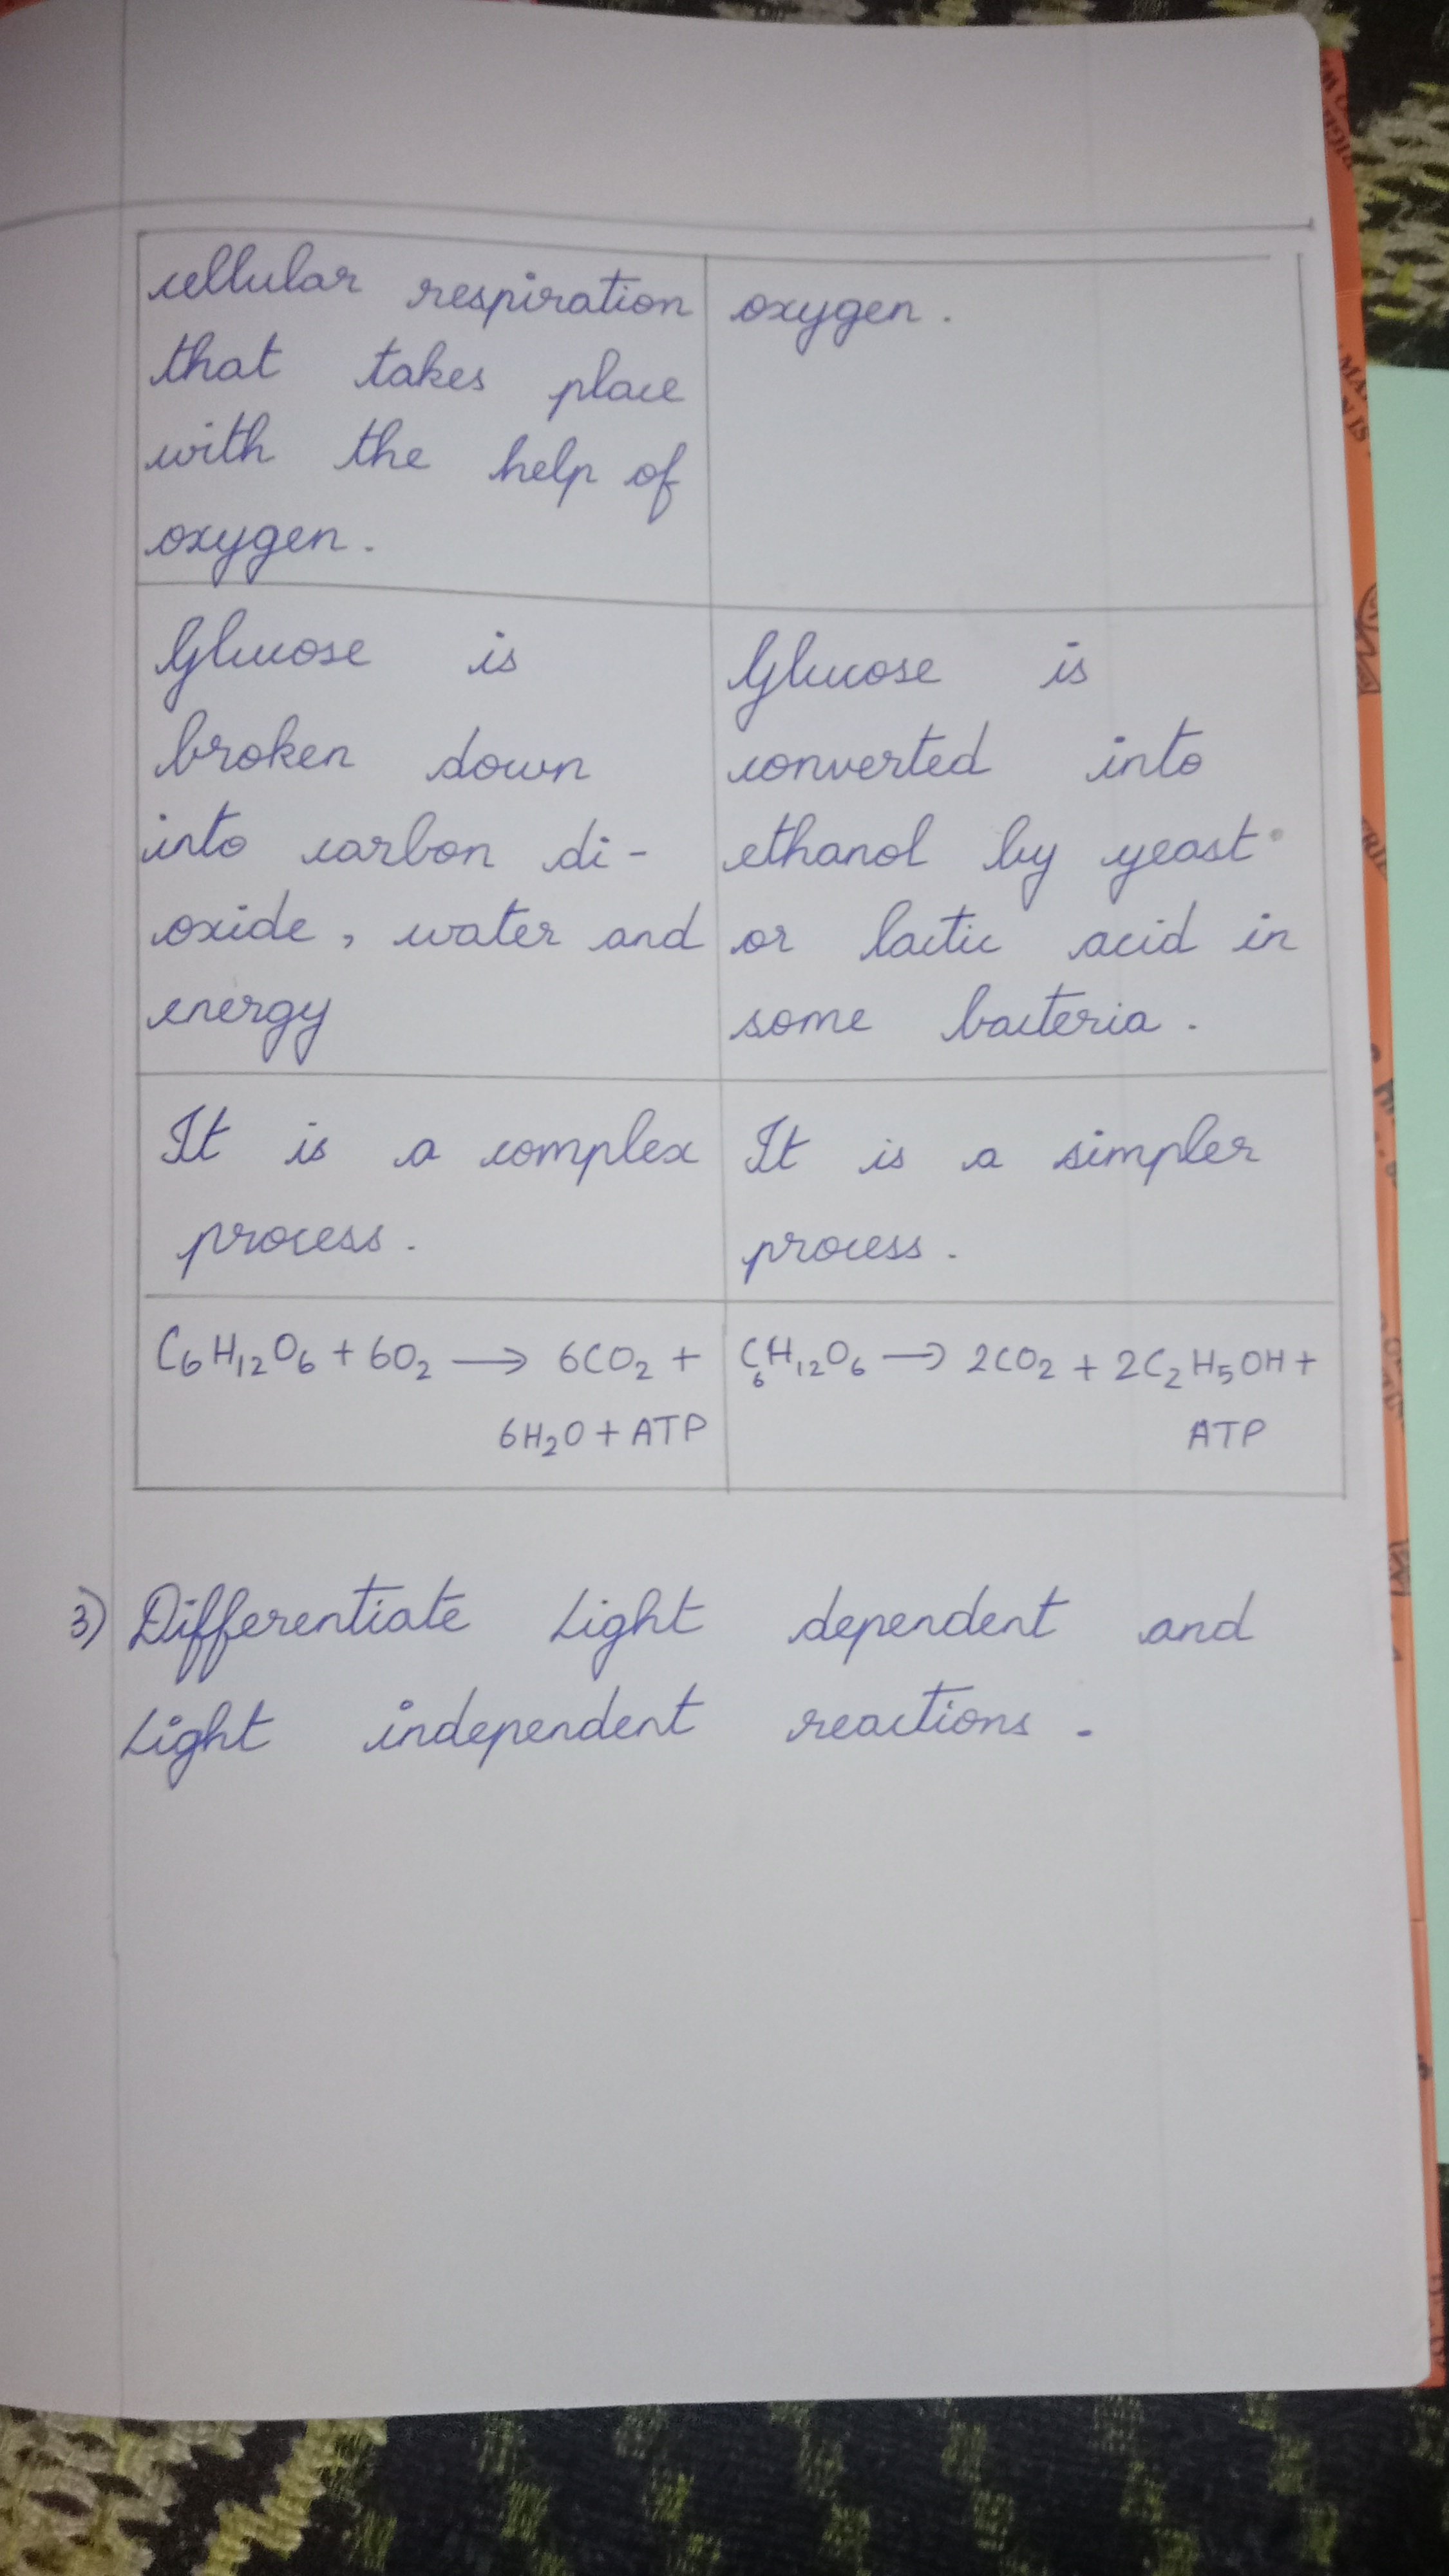 cellular respiration
that takes place
with the help of
oxygen.
oxygen.
Glucose is
broken down
into carbon di-
oxide, water and
energy
Glucose is
converted into
ethanol by yeast
or lactic acid in
some bacteria.
It is a complex
process.
It is a simpler
process.
C₆H₁₂O₆ + 6O₂ → 6CO₂ +
6H₂O + ATP
C₆H₁₂O₆ → 2CO₂ + 2C₂H₅OH +
ATP
3) Differentiate Light dependent and
Light independent reactions.